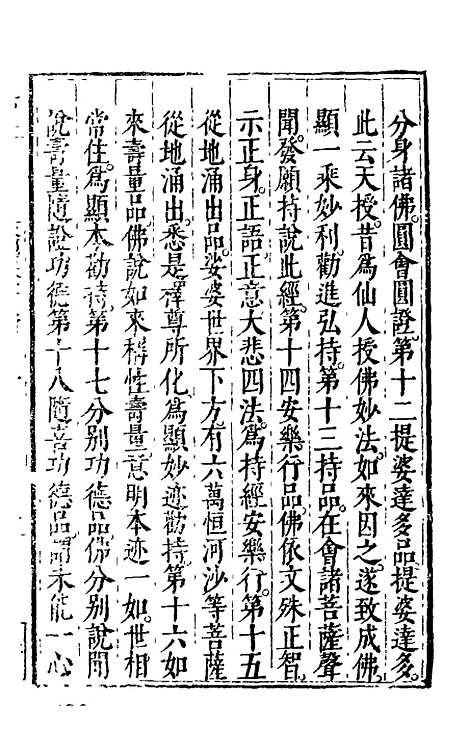 分身諸佛。圓會圓證。第十二提婆達多品。提婆達多。
此云天授。昔為仙人授佛妙法。如來因之。遂致成佛。
顯一乘妙利。勸進弘持。第十三持品。在會諸菩薩聲
聞。發願持說此經。第十四安樂行品。佛依文殊正智。
示正身。正語正意大悲四法。為持經安樂行。第十五
從地涌出品。娑婆世界下方有六萬恒河沙等菩薩
從地涌出。悉是釋尊所化。為顯妙迹勸持。第十六如
來壽量品。佛說如來稱性壽量。意明本迹一如。世相
常住。為顯本勸持。第十七分別功德品。佛分別說聞
說壽量隨證功德。第十八隨喜功德品。謂未能一心